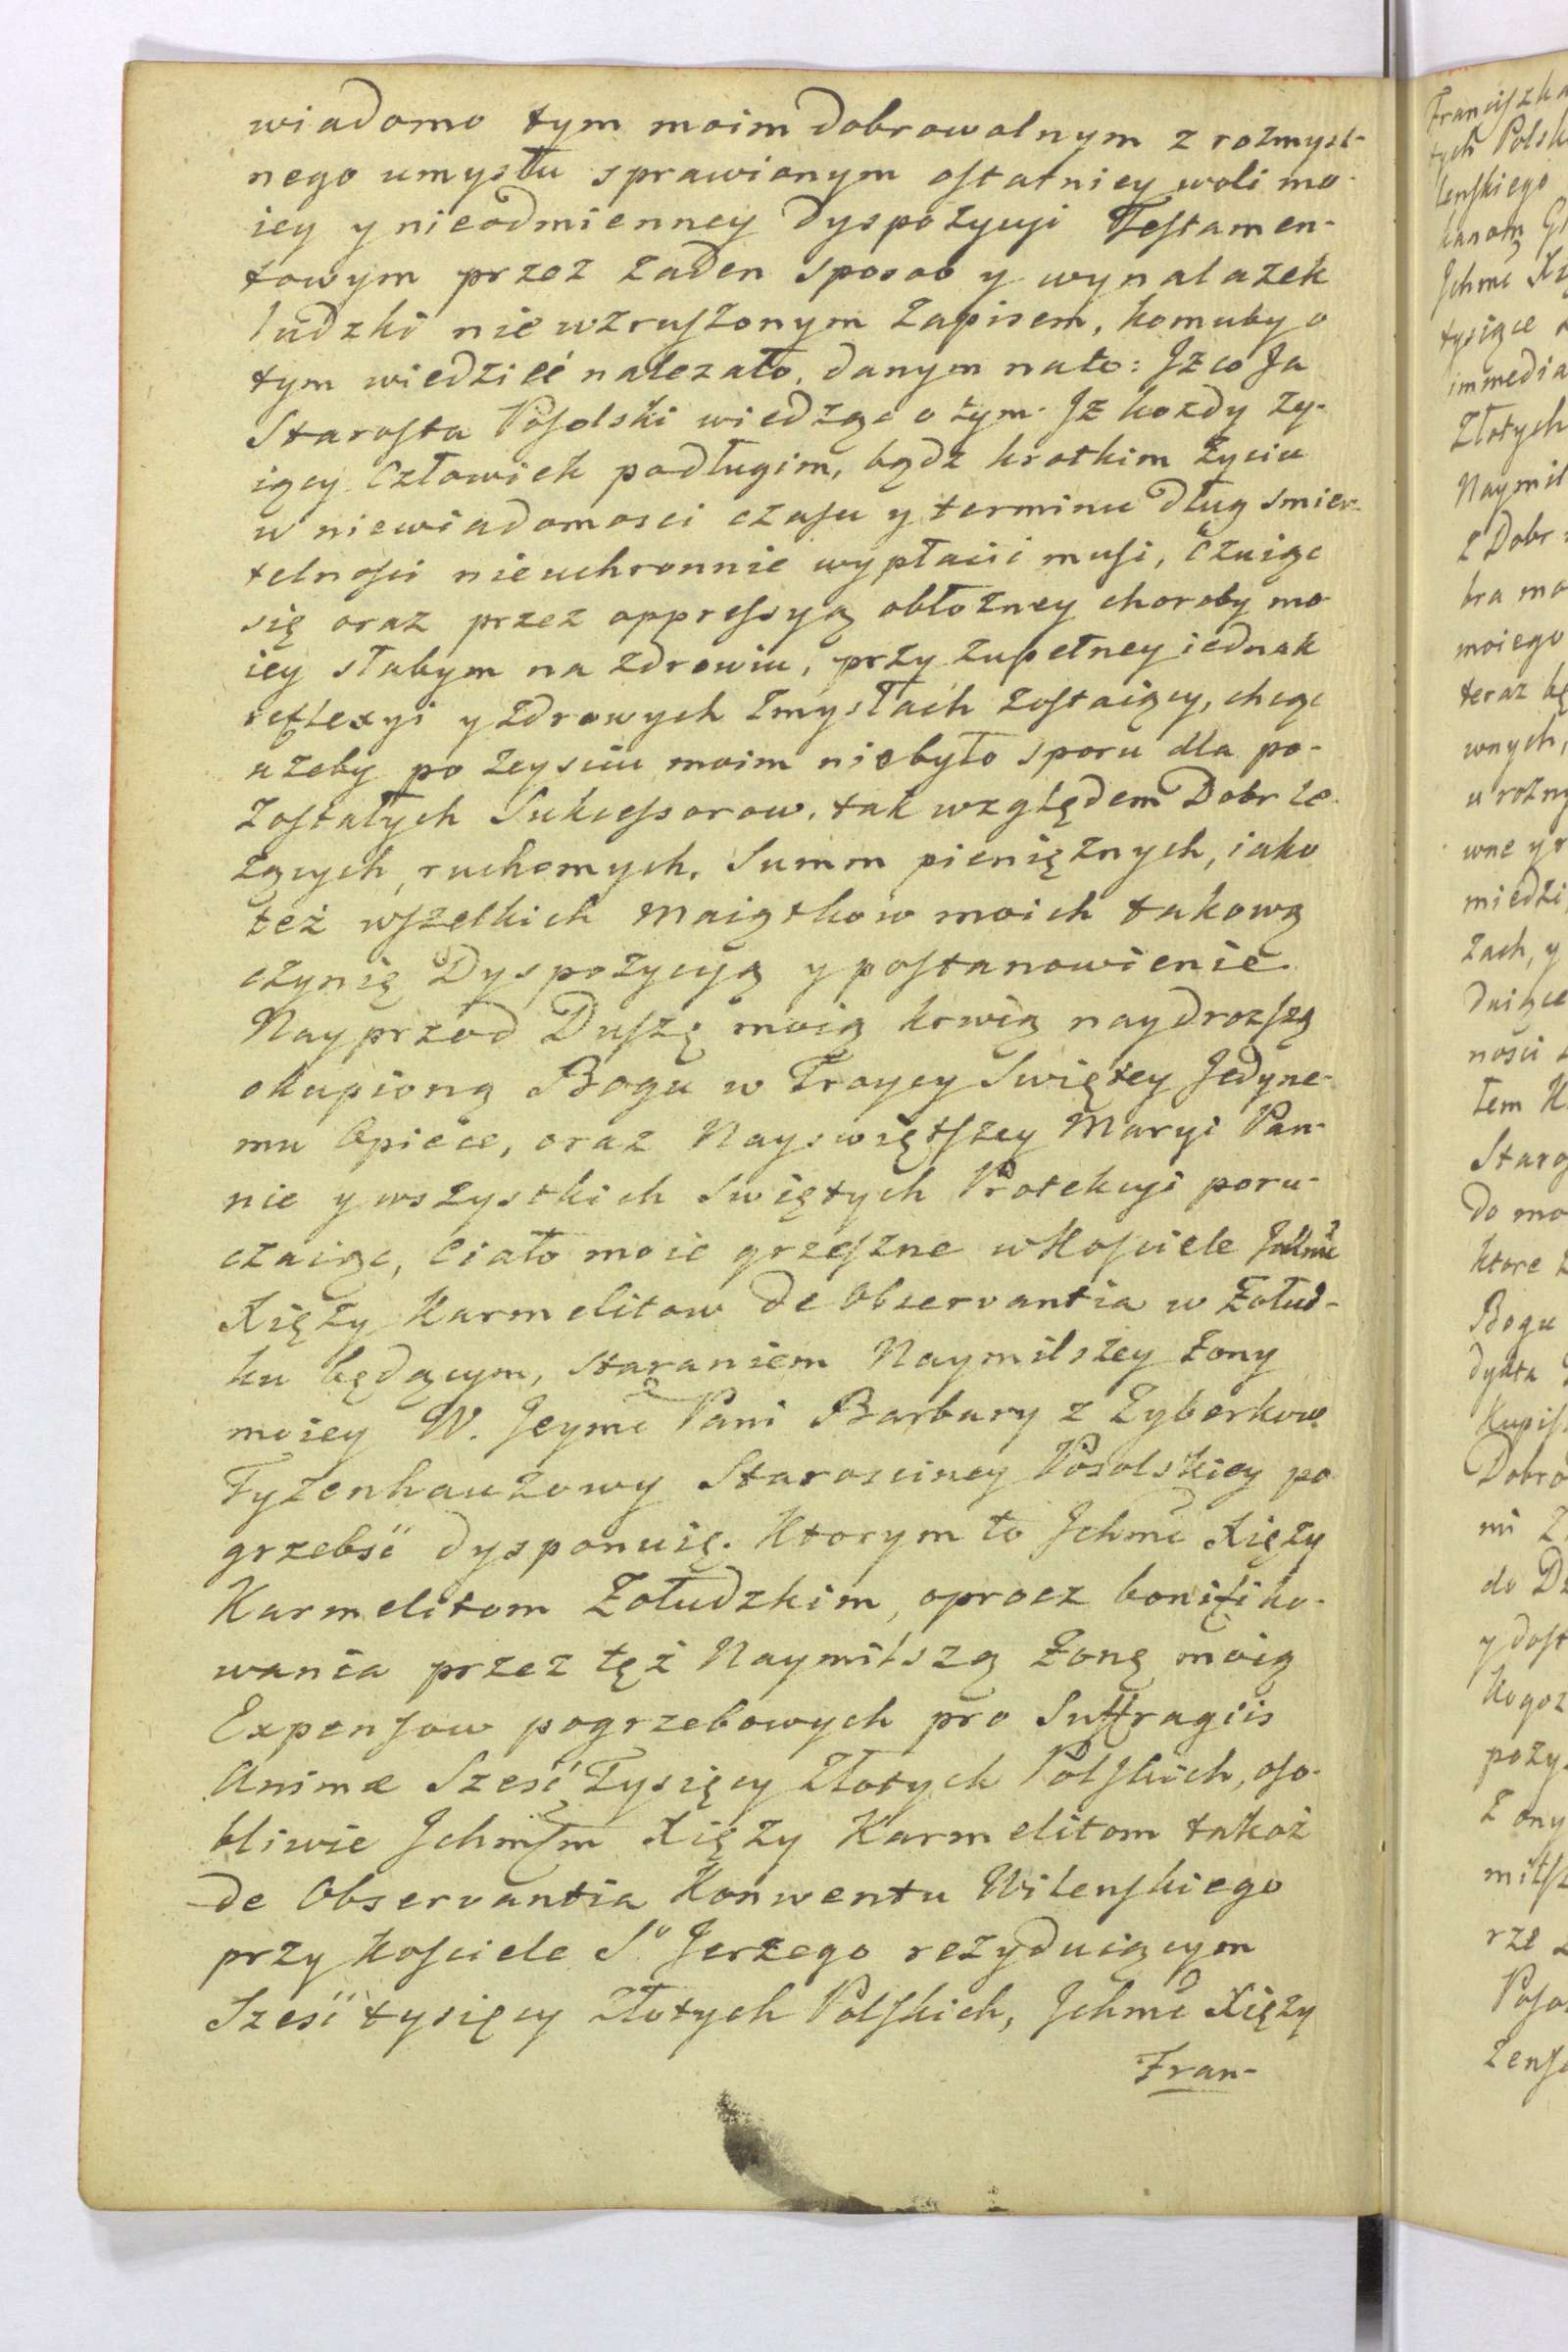 wiadomo tym moim dobrowolnym z rozmysl-
nego umysłu sprawionym ostatniey woli mo-
iey y nieodmienney Dyspozycyi Testamen-
towym przez zaden sposob y wynalazek
ludzki nie wzruszonym zapisem, komuby o
tym wiedzieć nalezało, danym nato: Jż co Ja
Starosta Posolski wiedząc o tym. Jż kozdy zy-
iący Człowiek podługim, bądz krotkim życiu
w niewiadomosci czasu y terminu dług smier-
telnosci nieuchronnie wypłacić musi, Czuiąc
się oraz przez oppressyą obłożney choroby mo-
iey słabym na zdrowiu, przy zupełney iednak
reflexyi y zdrowych zmysłach zostaiący, chcąc
azeby po zeysciu moim niebyło sporu dla po-
zostałych Sukcessorow, tak względem Dobr le-
żących, ruchomych, Summ pieniężnych, iako
też wszelkich Maiątkow moich takową
czynię Dyspozycyą y postanowienie.
Nayprzod Duszę moią krwią naydrozszą
okupioną Bogu w Troycy Swiętey Jedyne-
mu Opiece, oraz Nayswiętszey Maryi Pan-
nie y wszystkich Swiętych Protekcyi poru-
czaiąc, Ciało moie grzeszne w Kosciele
Xięży Karmelitow de Observantia w Żołud-
ku będącym, staraniem Naymilszey Żony
moiey W. Jeymć Pani Barbary z Zyberkow
Tyzenhauzowy Staroscincy Posolskiey po-
grzebść dysponuię. Ktorym to Jchmć Xięży
Karmelitom Żołudzkim, oprocz bonifiko-
wania przez tęż Naymilszą Żonę moią
Expensow pogrzebowych pro Suffragiis
Animæ Sześć Tysięcy Złotych Polskich, oso-
bliwie Jchmćm Xięży Karmelitom takoż
de Observantia Konwentu Wilenskiego
przy Kosciele S.º Jerzego rezyduiącym
Sześć tysięcy Złotych Polskich, Jchmć Xięży
Fran-
Franciszka
tych Polsk
lenskiego
Jchmć
tysiące
immedia
Złotych
Naymil
z Dobr
bra mo
moiego
teraz bę
wnych,
u rożny
wne y
miedzi
zach, y
duiące
nosci
łem
Staro
do mo
ktore
Bogu
dykta
Kupis
Dobro
mi
do
y dost
Kogoz
pozy
z ony
mils
rze
Poso